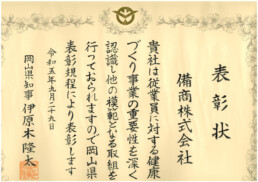 表彰状
備商株式会社
貴社は従業員に対する健康
づくり事業の重要性を深く
認識し他の模範となる取組を
行っておられますので岡山県
表彰規程により表彰します
令和五年九月二十九日
岡山県知事 伊原木隆太